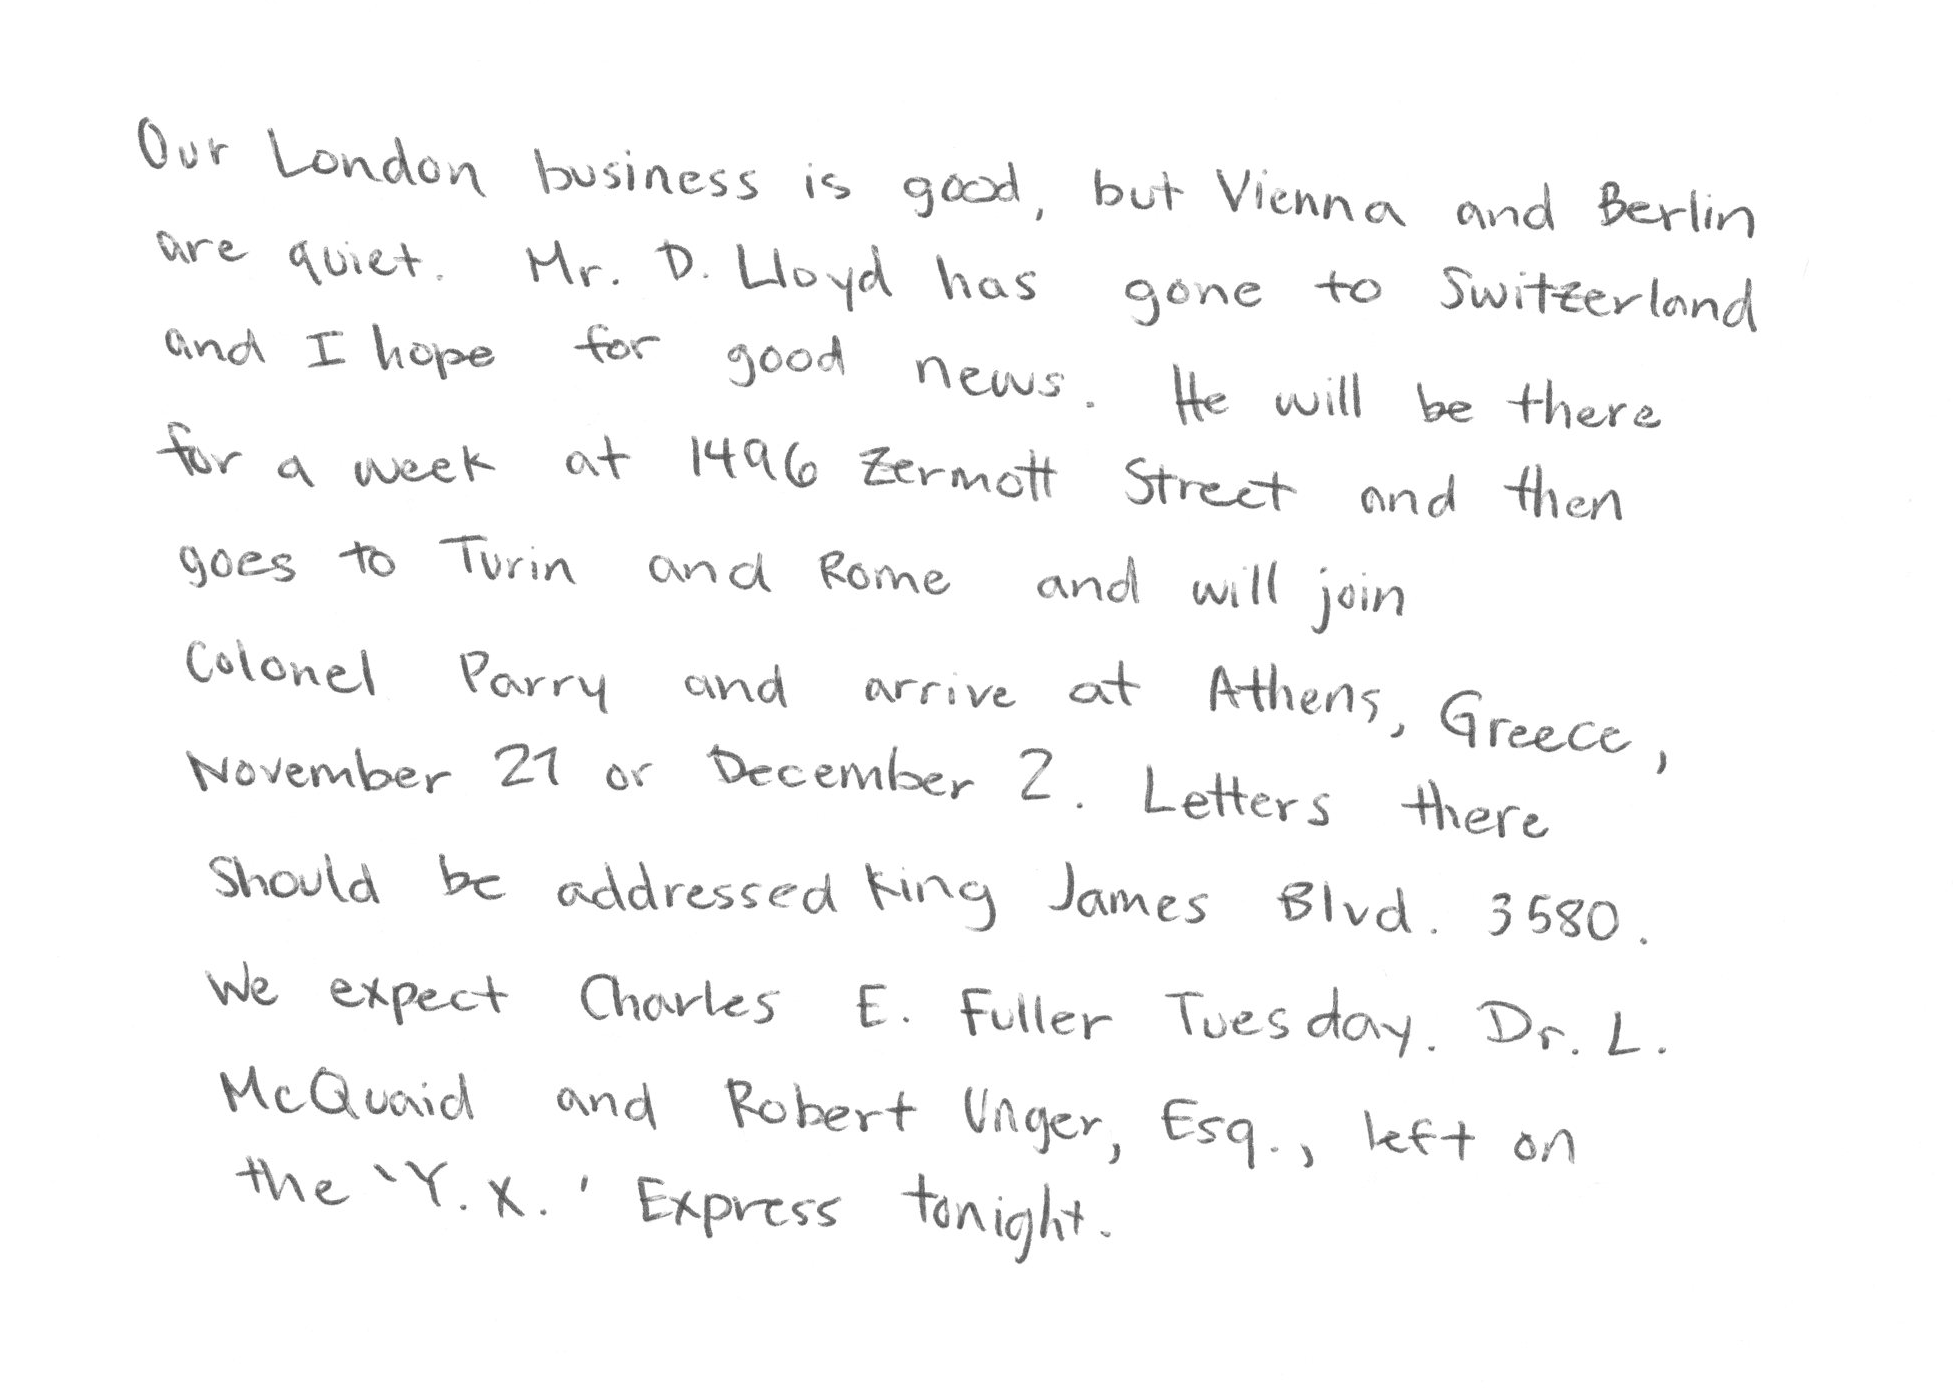 Our London business is good, but Vienna and Berlin
are quiet. Mr. D. Lloyd has gone to Switzerland
and I hope for good news. He will be there
for a week at 1496 Zermott Street and then
goes to Turin and Rome and will join
Colonel Parry and arrive at Athens, Greece,
November 27 or December 2. Letters there
should be addressed King James Blvd. 3580.
We expect Charles E. Fuller Tuesday. Dr. L.
McQuaid and Robert Unger, Esq., left on
the 'Y.X.' Express tonight.